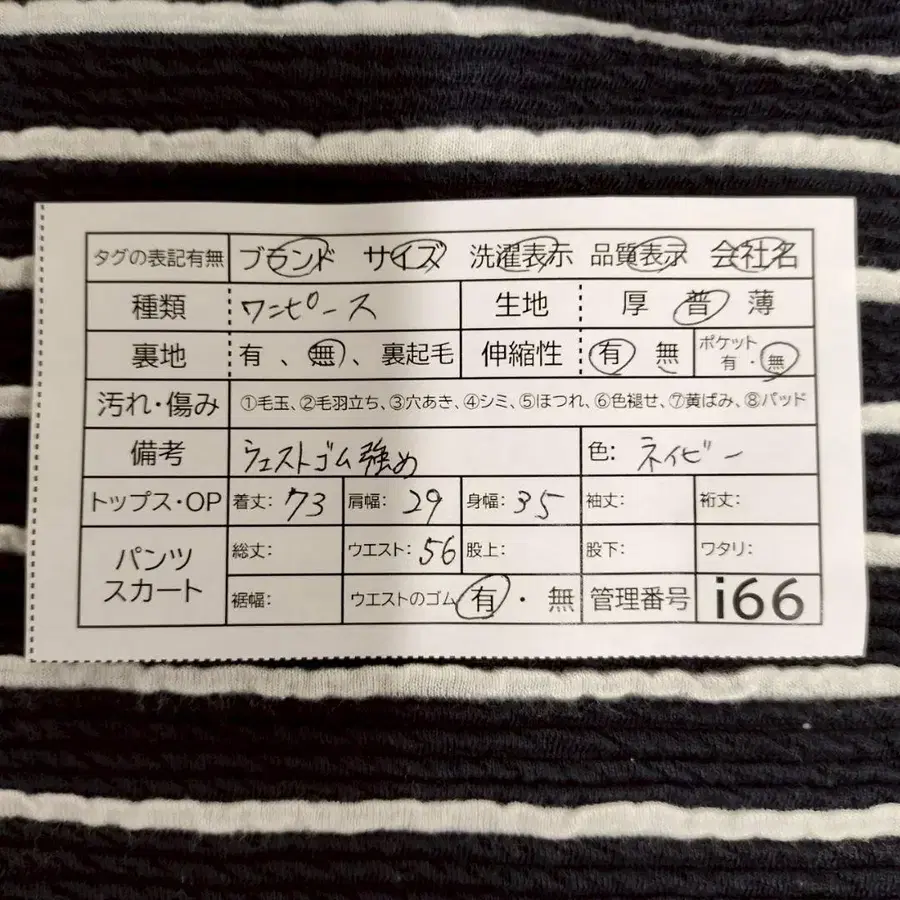 タグの表記有無 ブランド サイズ 洗濯表示 品質表示 会社名
種類 ワンピース 生地 厚 普 薄
裏地 有 、 無 、 裏起毛 伸縮性 有 無 ポケット 有・無
汚れ・傷み ①毛玉、②毛羽立ち、③穴あき、④シミ、⑤ほつれ、⑥色褪せ、⑦黄ばみ、⑧パッド
備考 ウエストゴム強め 色: ネイビー
トップス・OP 着丈: 73 肩幅: 29 身幅: 35 袖丈: 裄丈:
パンツ スカート 総丈: ウエスト: 56 股上: 股下: ワタリ:
裾幅: ウエストのゴム 有 ・ 無 管理番号 i66